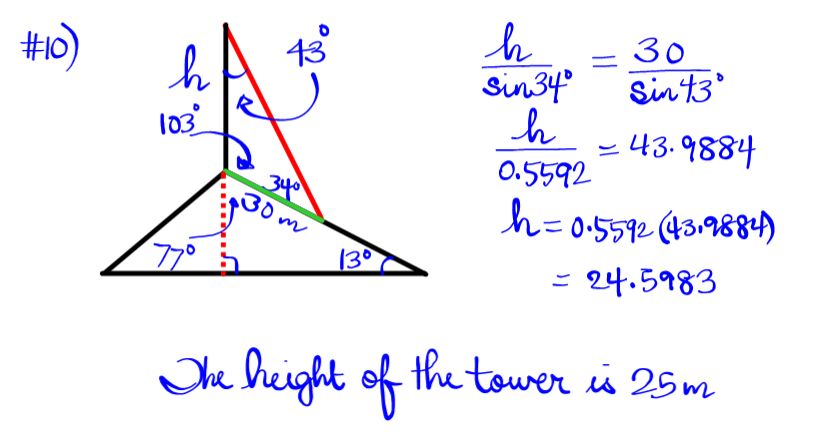 #10)
h
43°
103°
34°
30 m
77°
13°
h/sin34° = 30/sin43°
h/0.5592 = 43.9884
h = 0.5592 (43.9884)
= 24.5983
The height of the tower is 25m